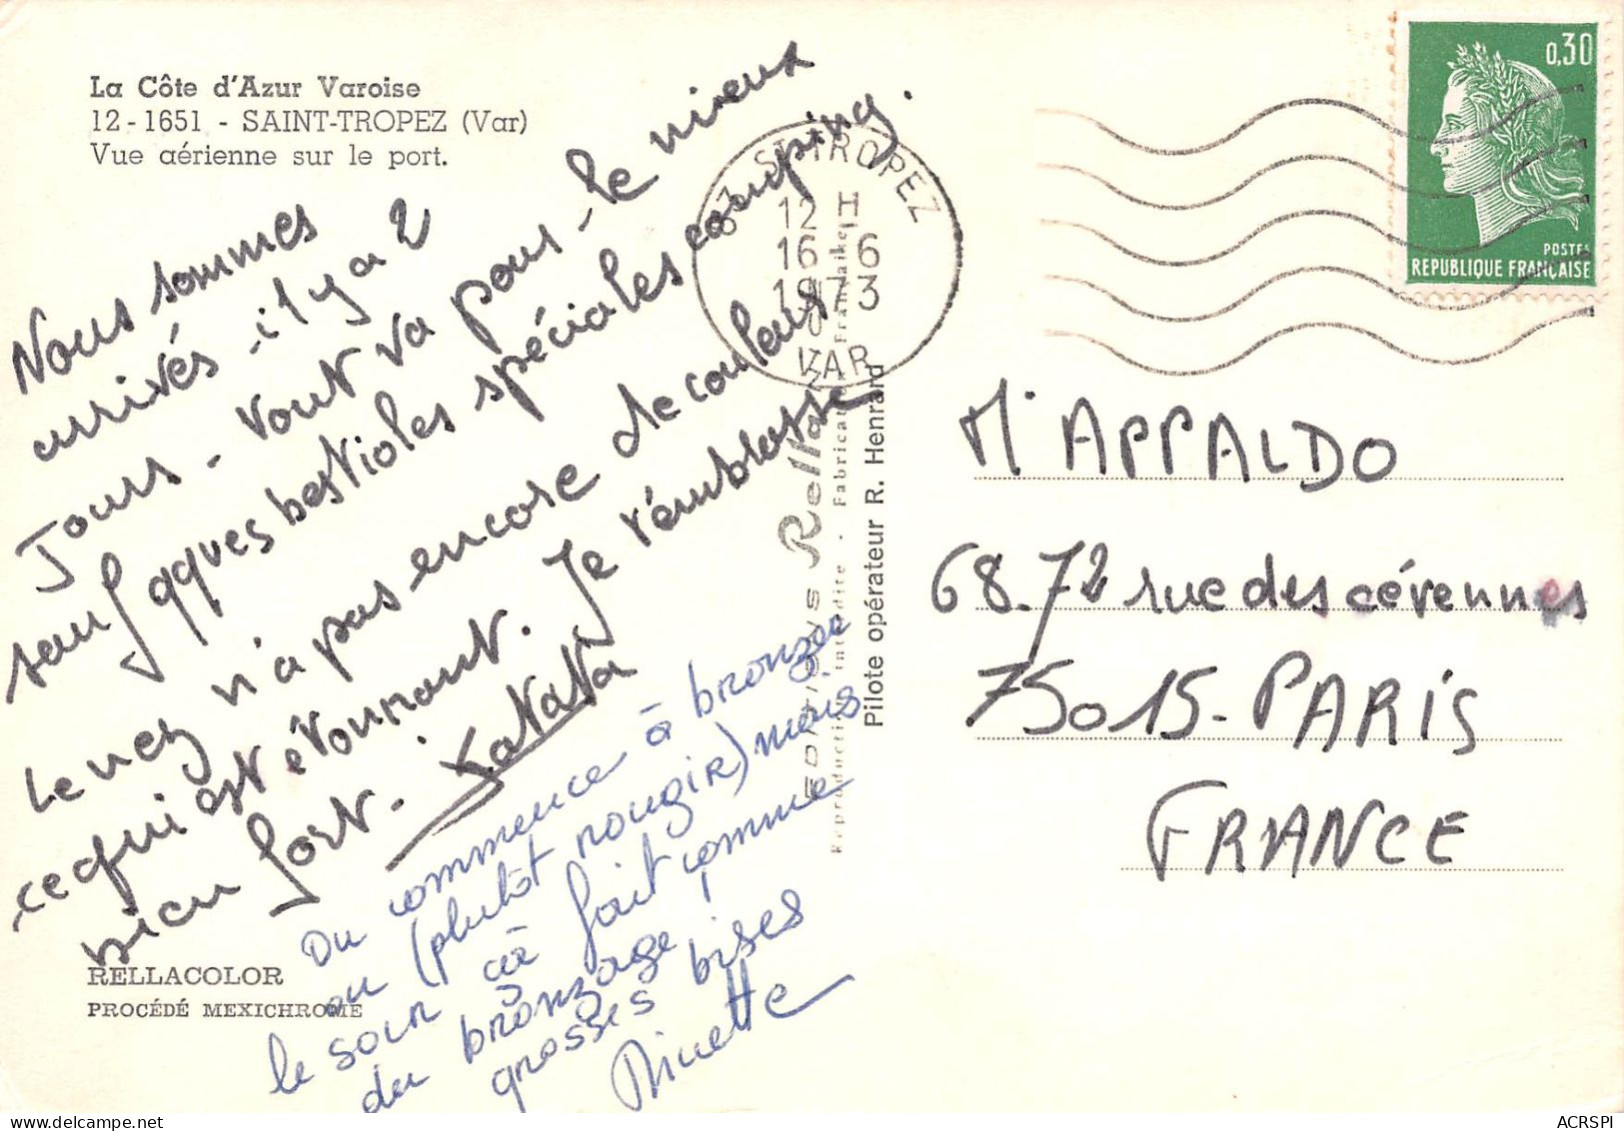 La Côte d'Azur Varoise
12-1651 - SAINT-TROPEZ (Var)
Vue aérienne sur le port.
Nous sommes
arrivés il y a 2
Jours. Tout va pour le mieux
sauf qques bestioles spéciales camping.
Le nez n'a pas encore de couleurs
ce qui est étonnant. Je t'emblasse
bien fort.
On commence à bronzer
ou (plutôt rougir) mais
le soir çà fait comme
du bronzage
grosses bises
Minette
RELLACOLOR
PROCÉDÉ MEXICHROME
83 ST TROPEZ
12 H
16 6
1973
VAR
Pilote opérateur R. Henrard
0,30
POSTES
REPUBLIQUE FRANÇAISE
Mr APPALDO
68.72 rue des cévennes
75015-PARIS
FRANCE
ACRSPI